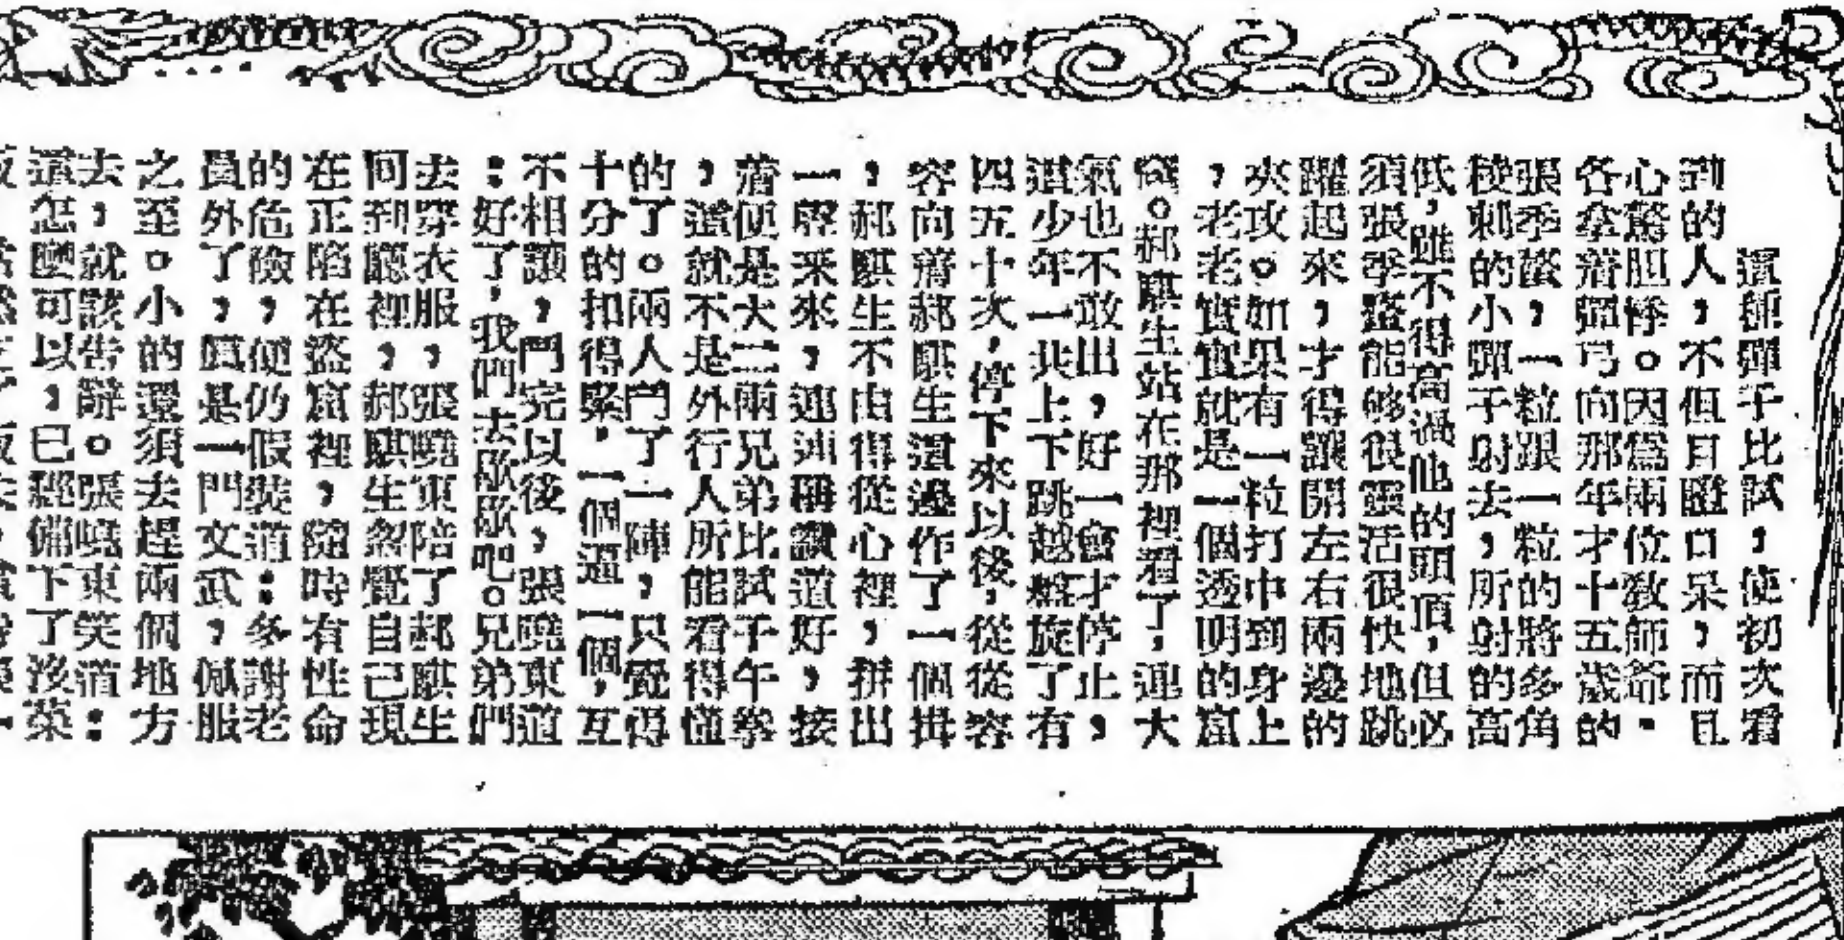 這種彈子比試，使初次看
到的人，不但目瞪口呆，而且
心驚胆悸。因爲兩位敎師爺，
各拿着彈弓向那年才十五歲的
張季蛩，一粒跟一粒的將多角
稜刺的小彈子射去，所射的高
低，雖不得高過他的頭頂，但必
須張季蛩能够很靈活很快地跳
躍起來，才得讓開左右兩邊的
夾攻。如果有一粒打中到身上
，老老實實就是一個透明的窟
窿。郝麒生站在那裡看了，連大
氣也不敢出，好一會才停止，
這少年一共上下跳越盤旋了有
四五十次，停下來以後，從從容
容向着郝麒生這邊作了一個揖
，郝麒生不由得從心裡，拼出
一聲釆來，連連稱讚道好，接
着便是大二兩兄弟比試子午拳
，這就不是外行人所能看得懂
的了。兩人鬥了一陣，只覺得
十分的扣得緊，一個逼一個，互
不相讓，鬥完以後，張曉東道
：好了，我們去歇歇吧。兄弟們
去穿衣服，張曉東陪了郝麒生
同到廳裡，郝麒生忽覺自己現
在正陷在盜窟裡，隨時有性命
的危險，便仍假裝道：多謝老
員外了，眞是一門文武，佩服
之至。小的還須去趕兩個地方
去，就該告辭。張曉東笑道：
這怎麼可以，已經備下了淡菜